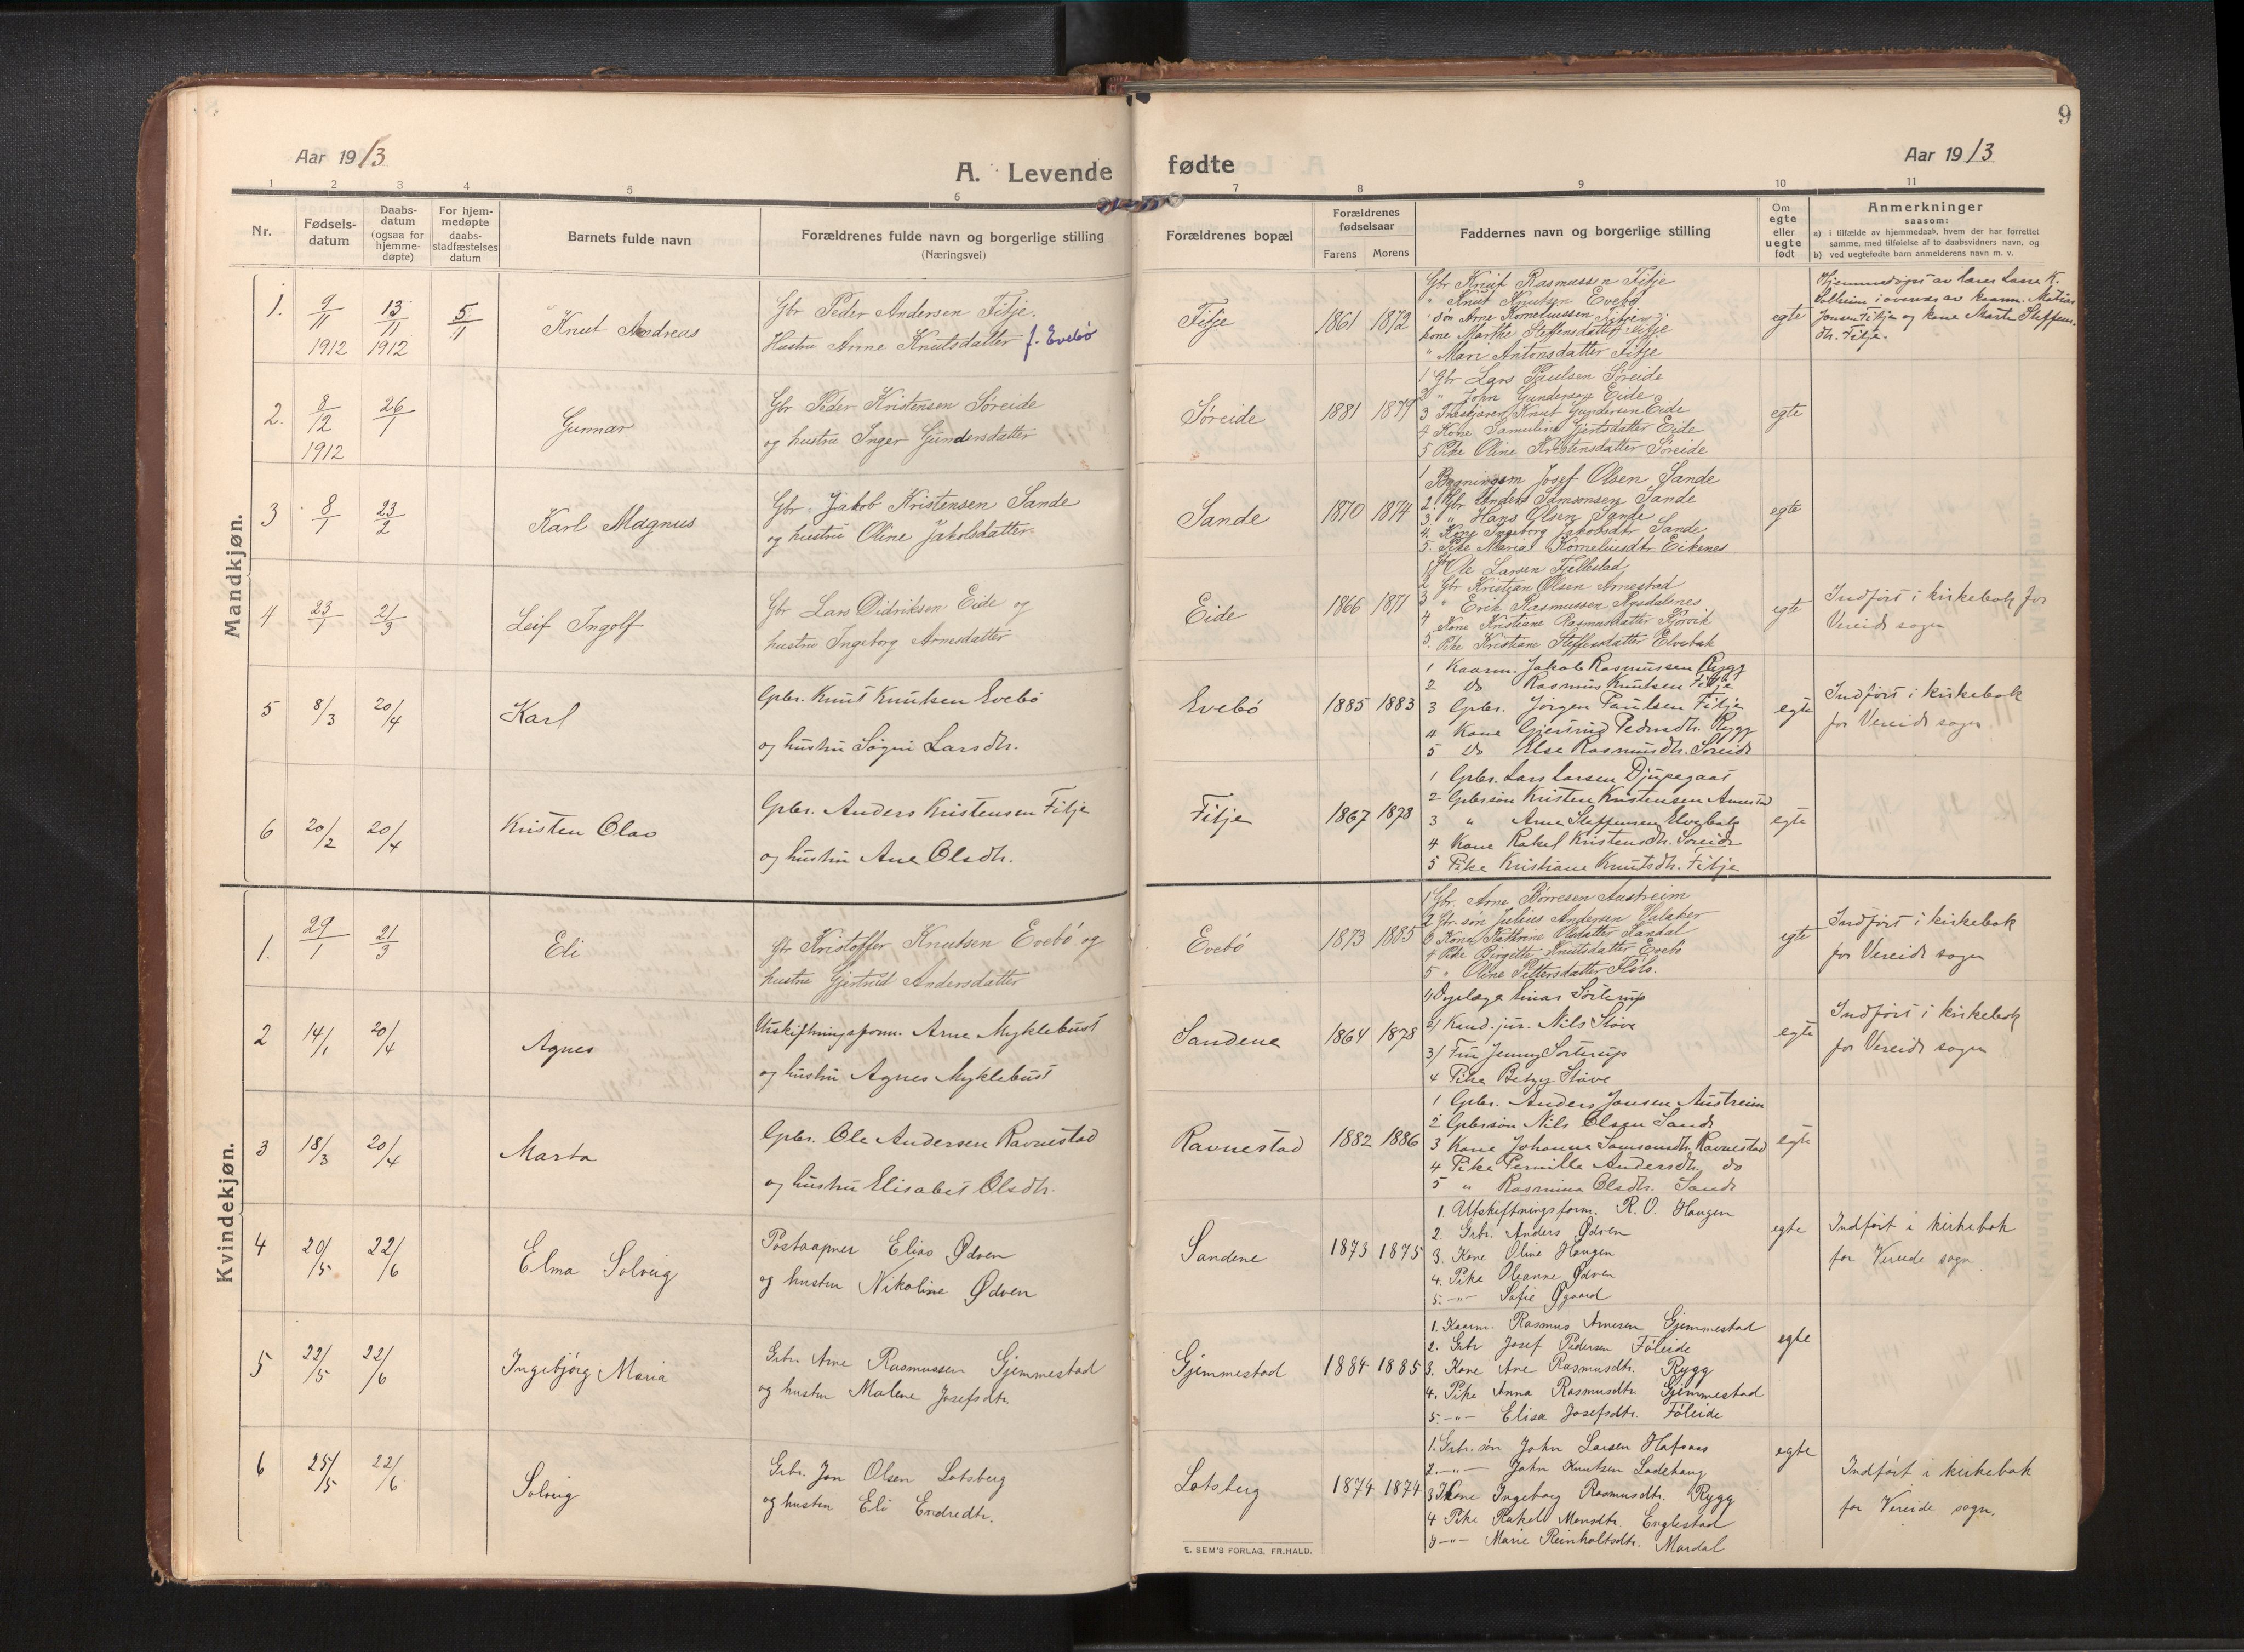 9
Aar 1913
A. Levende fødte
Aar 1913
1 2 3 4 5 6 7 8 9 10 11
Nr.
Fødsels-
datum
Daabs-
datum
(ogsaa for
hjemme-
døpte)
For hjem-
medøpte
daabs-
stadfæstelses
datum
Barnets fulde navn
Forældrenes fulde navn og borgerlige stilling
(Næringsvei)
Forældrenes bopæl
Forældrenes
fødselsaar
Farens Morens
Faddernes navn og borgerlige stilling
Om
egte
eller
uegte
født
Anmerkninger
saasom:
a) i tilfælde av hjemmedaab, hvem der har forrettet
samme, med tilføielse af to daabsvidners navn, og
b) ved uegtefødte barn anmelderens navn m. v.
Mandkjøn.
1. 9/11 1912 13/11 1912 5/1
Knut Andreas
Gbr Peder Andersen Fitje.
Hustru Anne Knutsdatter f. Evebø
Fitje 1861 1872
Gbr Knut Rasmussen Fitje
" Knut Knutsen Evebø
søn Arne Korneliussen Fitje
kone Marthe Steffensdatter Fitje
" Mari Antonsdatter Fitje
egte
Hjemmedøpt av lærer Lasse K.
Solheim i overvær av kaarm. Matias
Jonsen Fitje og kone Marte Steffens-
dtr. Fitje.
2. 8/12 1912 26/1
Gunnar
Gbr Peder Kristensen Søreide
og hustru Inger Gundersdatter
Søreide 1881 1877
1 Gbr Lars Paulsen Søreide
2 " John Gundersen Eide
3 Træskjærer Knut Gundersen Eide
4 Kone Samuline Gjertsdatter Eide
5 Pike Oline Kristensdatter Søreide
egte
3 8/1 23/2
Karl Magnus
Gbr Jakob Kristensen Sande
og hustru Oline Jakobsdatter
Sande 1870 1874
1 Bygningsm Josef Olsen Sande
2. Gbr Anders Samsonsen Sande
3. " Hans Olsen Sande
4. Kone Ingeborg Jakobsdtr Sande
5. Pike Maria Korneliusdtr Eikenes
egte
4 23/1 21/3
Leif Ingolf
Gbr Lars Didriksen Eide og
hustru Ingeborg Arnesdatter
Eide 1866 1871
1 Gbr Ole Larsen Fjellestad
2 Gbr Kristjan Olsen Arnestad
3 " Erik Rasmussen Rysdalsnes
4 Kone Kristiane Rasmusdatter
5. Pike Kristiane Steffensdatter Elvebak
egte
Indført i kirkebok for
Vereide sogn
5 8/3 20/4
Karl
Gbr. Knut Knutsen Evebø
og hustru Søgni Larsdtr.
Evebø 1885 1883
1 Kaarm. Jakob Rasmussen Rygg
2 do Rasmus Knutsen Fitje
3 Gpbr. Jørgen Paulsen Fitje
4 Kone Gjertrud Pedersdtr. Rygg
5 do Else Rasmusdtr. Søreide
egte
Indført i kirkebok
for Vereide sogn
6 20/2 20/4
Kristen Olav
Gpbr. Anders Kristensen Fitje
og hustru Ane Olsdtr.
Fitje 1867 1878
1 Gpbr. Lars Larsen Djupegaat
2 Gpbrsøn Kristen Kristensen Arnestad
3 " Arne Steffensen Elvebak
4 Kone Rakel Kristensdtr. Søreide
5 Pike Kristiane Knutsdtr. Fitje
egte
Kvindekjøn.
1. 29/1 21/3
Eli
Gbr Kristoffer Knutsen Evebø og
hustru Gjertrud Andersdatter
Evebø 1873 1885
1 Gbr. Arne Børresen Austreim
2 Gbr. søn Julius Andersen Valaker
3 Kone Kathrine Olsdatter Sandal
4 Pike Birgitte Knutsdatter Evebø
5 " Oline Pettersdatter Flølo.
egte
Indført i kirkebok
for Vereide sogn
2 14/1 20/4
Agnes
Utskiftningsform. Arne Myklebust
og hustru Agnes Myklebust
Sandene 1864 1878
1) Dyrlæge Einar Sørterup
2) Kand. jur. Nils Støve
3) Fru Jenny Sørterup
4 Pike Betzy Støve
egte
Indført i kirkebok
for Vereide sogn
3 18/3 20/4
Marta
Gpbr. Ole Andersen Ravnestad
og hustru Elisabet Olsdtr.
Ravnestad 1882 1886
1 Gpbr. Anders Jonsen Austreim
2 Gpbrsøn Nils Olsen Sande
3 Kone Johanne Samsonsdtr. Ravnestad
4 Pike Pernille Andersdtr. do
5 " Rasmina Olsdtr. Sande
egte
4 20/5 22/6
Elma Solveig
Postaapner Elias Ødven
og hustru Nikoline Ødven
Sandene 1873 1875
1. Utskiftningsform. R. O. Haugen
2. Grbr. Anders Ødven
3. Kone Oline Haugen
4. Pike Oleanne Ødven
5. -"- Sofie Øgaard
egte
Indført i kirkebok
for Vereide sogn
5 22/5 22/6
Ingebjørg Maria
Grbr. Arne Rasmussen Gjemmestad
og hustru Malene Josefsdtr.
Gjemmestad 1884 1885
1. Kaarm. Rasmus Arnesen Gjemmestad
2. Grbr Josef Pedersen Føleide
3. Kone Ane Rasmusdtr. Rygg
4. Pike Anna Rasmusdtr. Gjemmestad
5. -"- Elisa Josefsdtr. Føleide
egte
6 25/5 22/6
Solveig
Grbr. Jon Olsen Lotsberg
og hustru Eli Endredtr.
Lotsberg 1874 1874
1. Grbr. søn John Larsen Hafsaas
2. -"- John Knutsen Ladehaug
3 Kone Ingeborg Rasmusdtr. Rygg
4 Pike Rakel Monsdtr. Englestad
5 -"- Marie Reinholtsdtr. Mardal
egte
Indført i kirkebok
for Vereide sogn.
E. SEM'S FORLAG, FR.HALD.